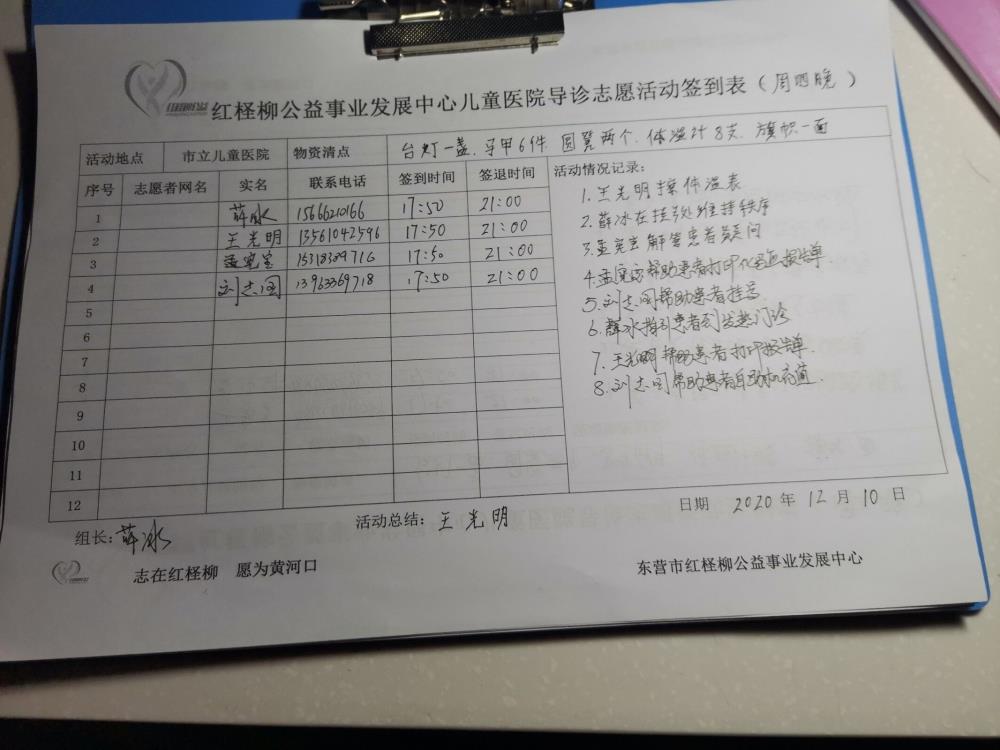 红柽柳公益事业发展中心儿童医院导诊志愿活动签到表（周四晚）
活动地点 市立儿童医院 物资清点 台灯一盏. 马甲6件 圆凳两个. 体温计8支. 旗帜一面
序号 志愿者网名 实名 联系电话 签到时间 签退时间 活动情况记录:
1 薛冰 15666210166 17:50 21:00
2 王光明 13561042596 17:50 21:00
3 17:50 21:00
4 刘志国 13963369718 17:50 21:00
5
6
7
8
9
10
11
12
1. 王光明 体温表
2. 薛冰在挂号处维持秩序
3. 解答患者疑问
4. 帮助患者打印化验报告单
5. 刘志国帮助患者挂号
6. 薛冰指引患者到发热门诊
7. 王光明帮助患者打印报告单.
8. 刘志国帮助患者自助机充值.
日期 2020 年 12 月 10 日
组长: 薛冰 活动总结: 王光明
志在红柽柳 愿为黄河口 东营市红柽柳公益事业发展中心